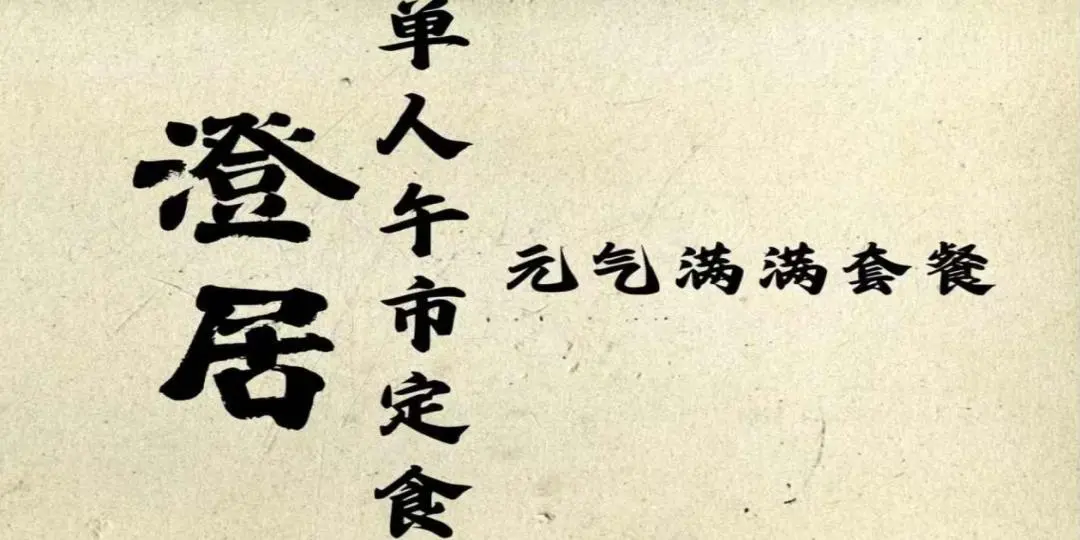 澄居
单人午市定食
元气满满套餐